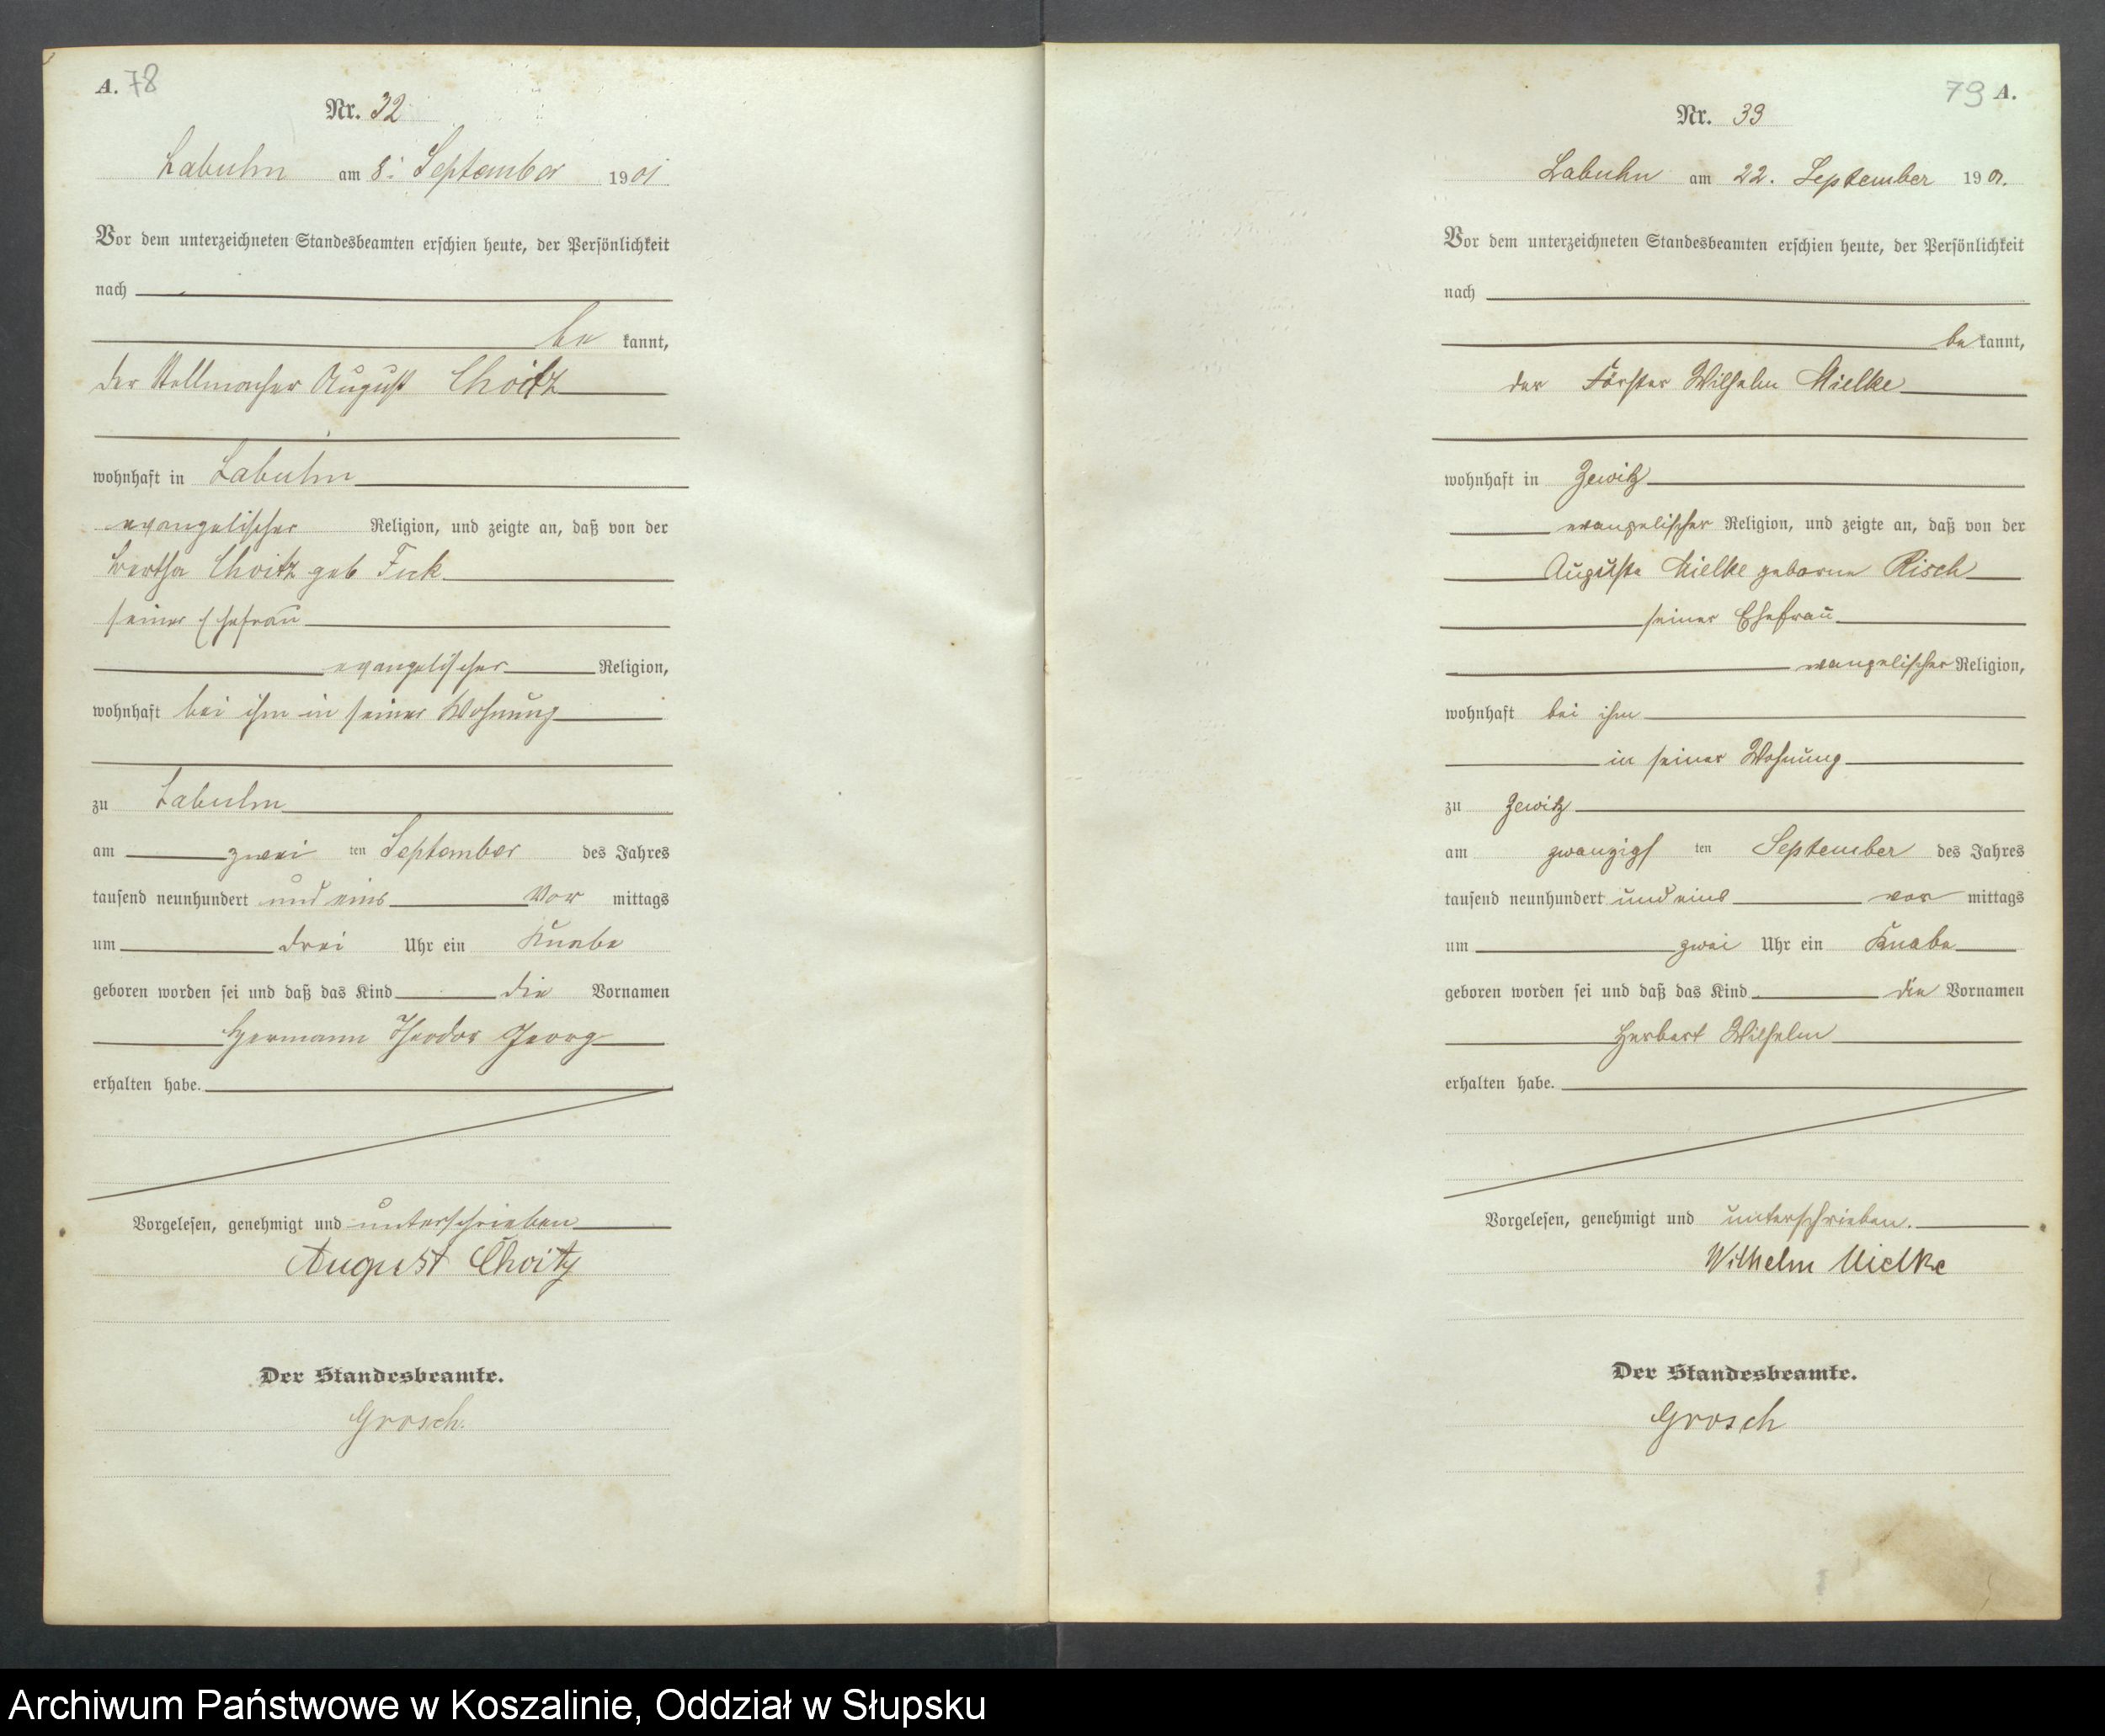 A. 78
Nr. 32
Labuhn am 8. September 1901
Vor dem unterzeichneten Standesbeamten erschien heute, der Persönlichkeit
nach
be kannt,
der Stellmacher August Choitz
wohnhaft in Labuhn
evangelischer Religion, und zeigte an, daß von der
Bertha Choitz geb Fick
seiner Ehefrau
evangelischer Religion,
wohnhaft bei ihm in seiner Wohnung
zu Labuhn
am zwei ten September des Jahres
tausend neunhundert und eins Vor mittags
um drei Uhr ein Knabe
geboren worden sei und daß das Kind die Vornamen
Hermann Theodor Georg
erhalten habe.
Vorgelesen, genehmigt und unterschrieben
August Choitz
Der Standesbeamte.
Grosch.
79 A.
Nr. 33
Labuhn am 22. September 1901.
Vor dem unterzeichneten Standesbeamten erschien heute, der Persönlichkeit
nach
be kannt,
der Förster Wilhelm Mielke
wohnhaft in Zewitz
evangelischer Religion, und zeigte an, daß von der
Auguste Mielke geborne Risch
seiner Ehefrau
evangelischer Religion,
wohnhaft bei ihm
in seiner Wohnung
zu Zewitz
am zwanzigs ten September des Jahres
tausend neunhundert und eins vor mittags
um zwei Uhr ein Knabe
geboren worden sei und daß das Kind die Vornamen
Herbert Wilhelm
erhalten habe.
Vorgelesen, genehmigt und unterschrieben.
Wilhelm Mielke
Der Standesbeamte.
Grosch
Archiwum Państwowe w Koszalinie, Oddział w Słupsku